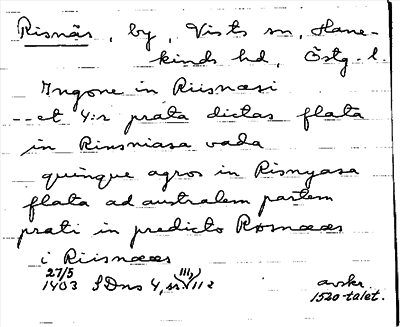 Risnäs, by, Vists sn, Hane-
kinds hd, Östg. l.
Ingone in Riisnæsi
-- et 4:r prata dictas flata
in Rinsniasa vada
quinque agros in Risnyasa
flata ad australem partem
prati in predicto Rosnææs
i Riisnææs
27/5
1403 SDns 4, 112
avskr.
1520-talet.